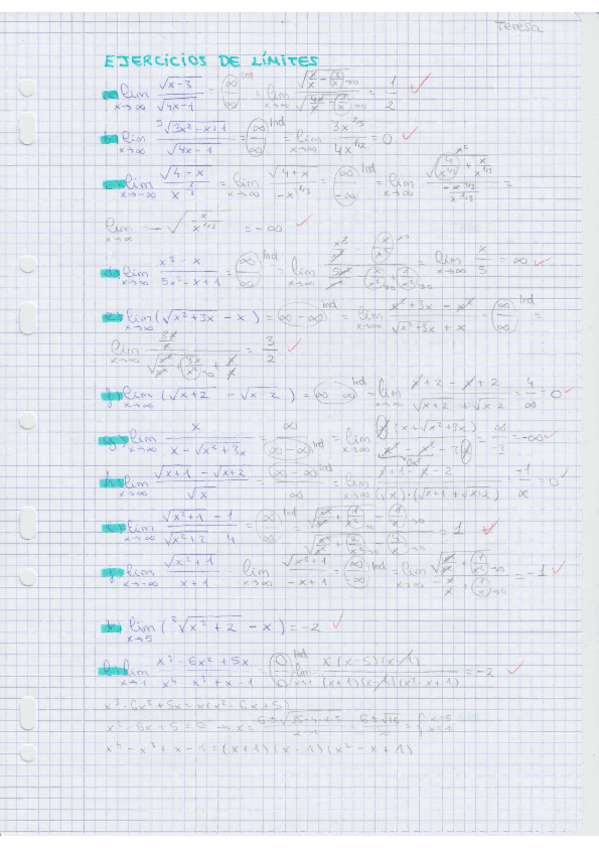 Teresa
EJERCICIOS DE LÍMITES
a) lim x→∞ √x-3 / √4x-1 = (∞/∞) Ind = lim x→∞ = 1/2 ✓
b) lim x→∞ ⁵√3x²-x+1 / √4x-1 = (∞/∞) Ind = lim x→∞ 3x^2/5 / 4x^1/2 = 0 ✓
c) lim x→-∞ √4-x / x^1/3 = lim x→∞ √4+x / -x^1/3 = (∞/-∞) Ind = lim x→∞ =
lim x→∞ -√ x / x^1/3 = -∞ ✓
d) lim x→∞ x³-x / 5x²-x+1 = (∞/∞) Ind = lim x→∞ = lim x→∞ x/5 = ∞ ✓
e) lim x→∞ (√x²+3x - x) = (∞-∞) ind = lim x→∞ x²+3x-x² / √x²+3x + x = (∞/∞) Ind =
lim x→∞ = 3/2 ✓
f) lim x→∞ (√x+2 - √x-2) = (∞-∞) ind = lim x→∞ x+2-x+2 / √x+2 + √x-2 = 4/∞ = 0 ✓
g) lim x→∞ x / x-√x²+3x = ∞ / (∞-∞) Ind = lim x→∞ x(x+√x²+3x) / x²-x²-3x = ∞/-3 = -∞ ✓
h) lim x→∞ √x+1 - √x+2 / √x = (∞-∞) ind / ∞ = lim x→∞ x+1-x-2 / (√x)·(√x+1+√x+2) = -1/∞ = 0 ✓
i) lim x→∞ √x²+1 - 1 / √x²+2 - 4 = (∞/∞) Ind = = 1 ✓
j) lim x→-∞ √x²+1 / x+1 = lim x→∞ √x²+1 / -x+1 = (∞/∞) Ind = lim x→∞ = -1 ✓
k) lim x→5 (³√x²+2 - x) = -2 ✓
l) lim x→1 x³-6x²+5x / x⁴-x³+x-1 = (0/0) Ind = lim x→1 x(x-5)(x-1) / (x+1)(x-1)(x²-x+1) = -2 ✓
x³-6x²+5x = x(x²-6x+5)
x²-6x+5=0 → x = 6±√36-4·1·5 / 2·1 = 6±√16 / 2 = { x=5 x=1
x⁴-x³+x-1 = (x+1)(x-1)(x²-x+1)